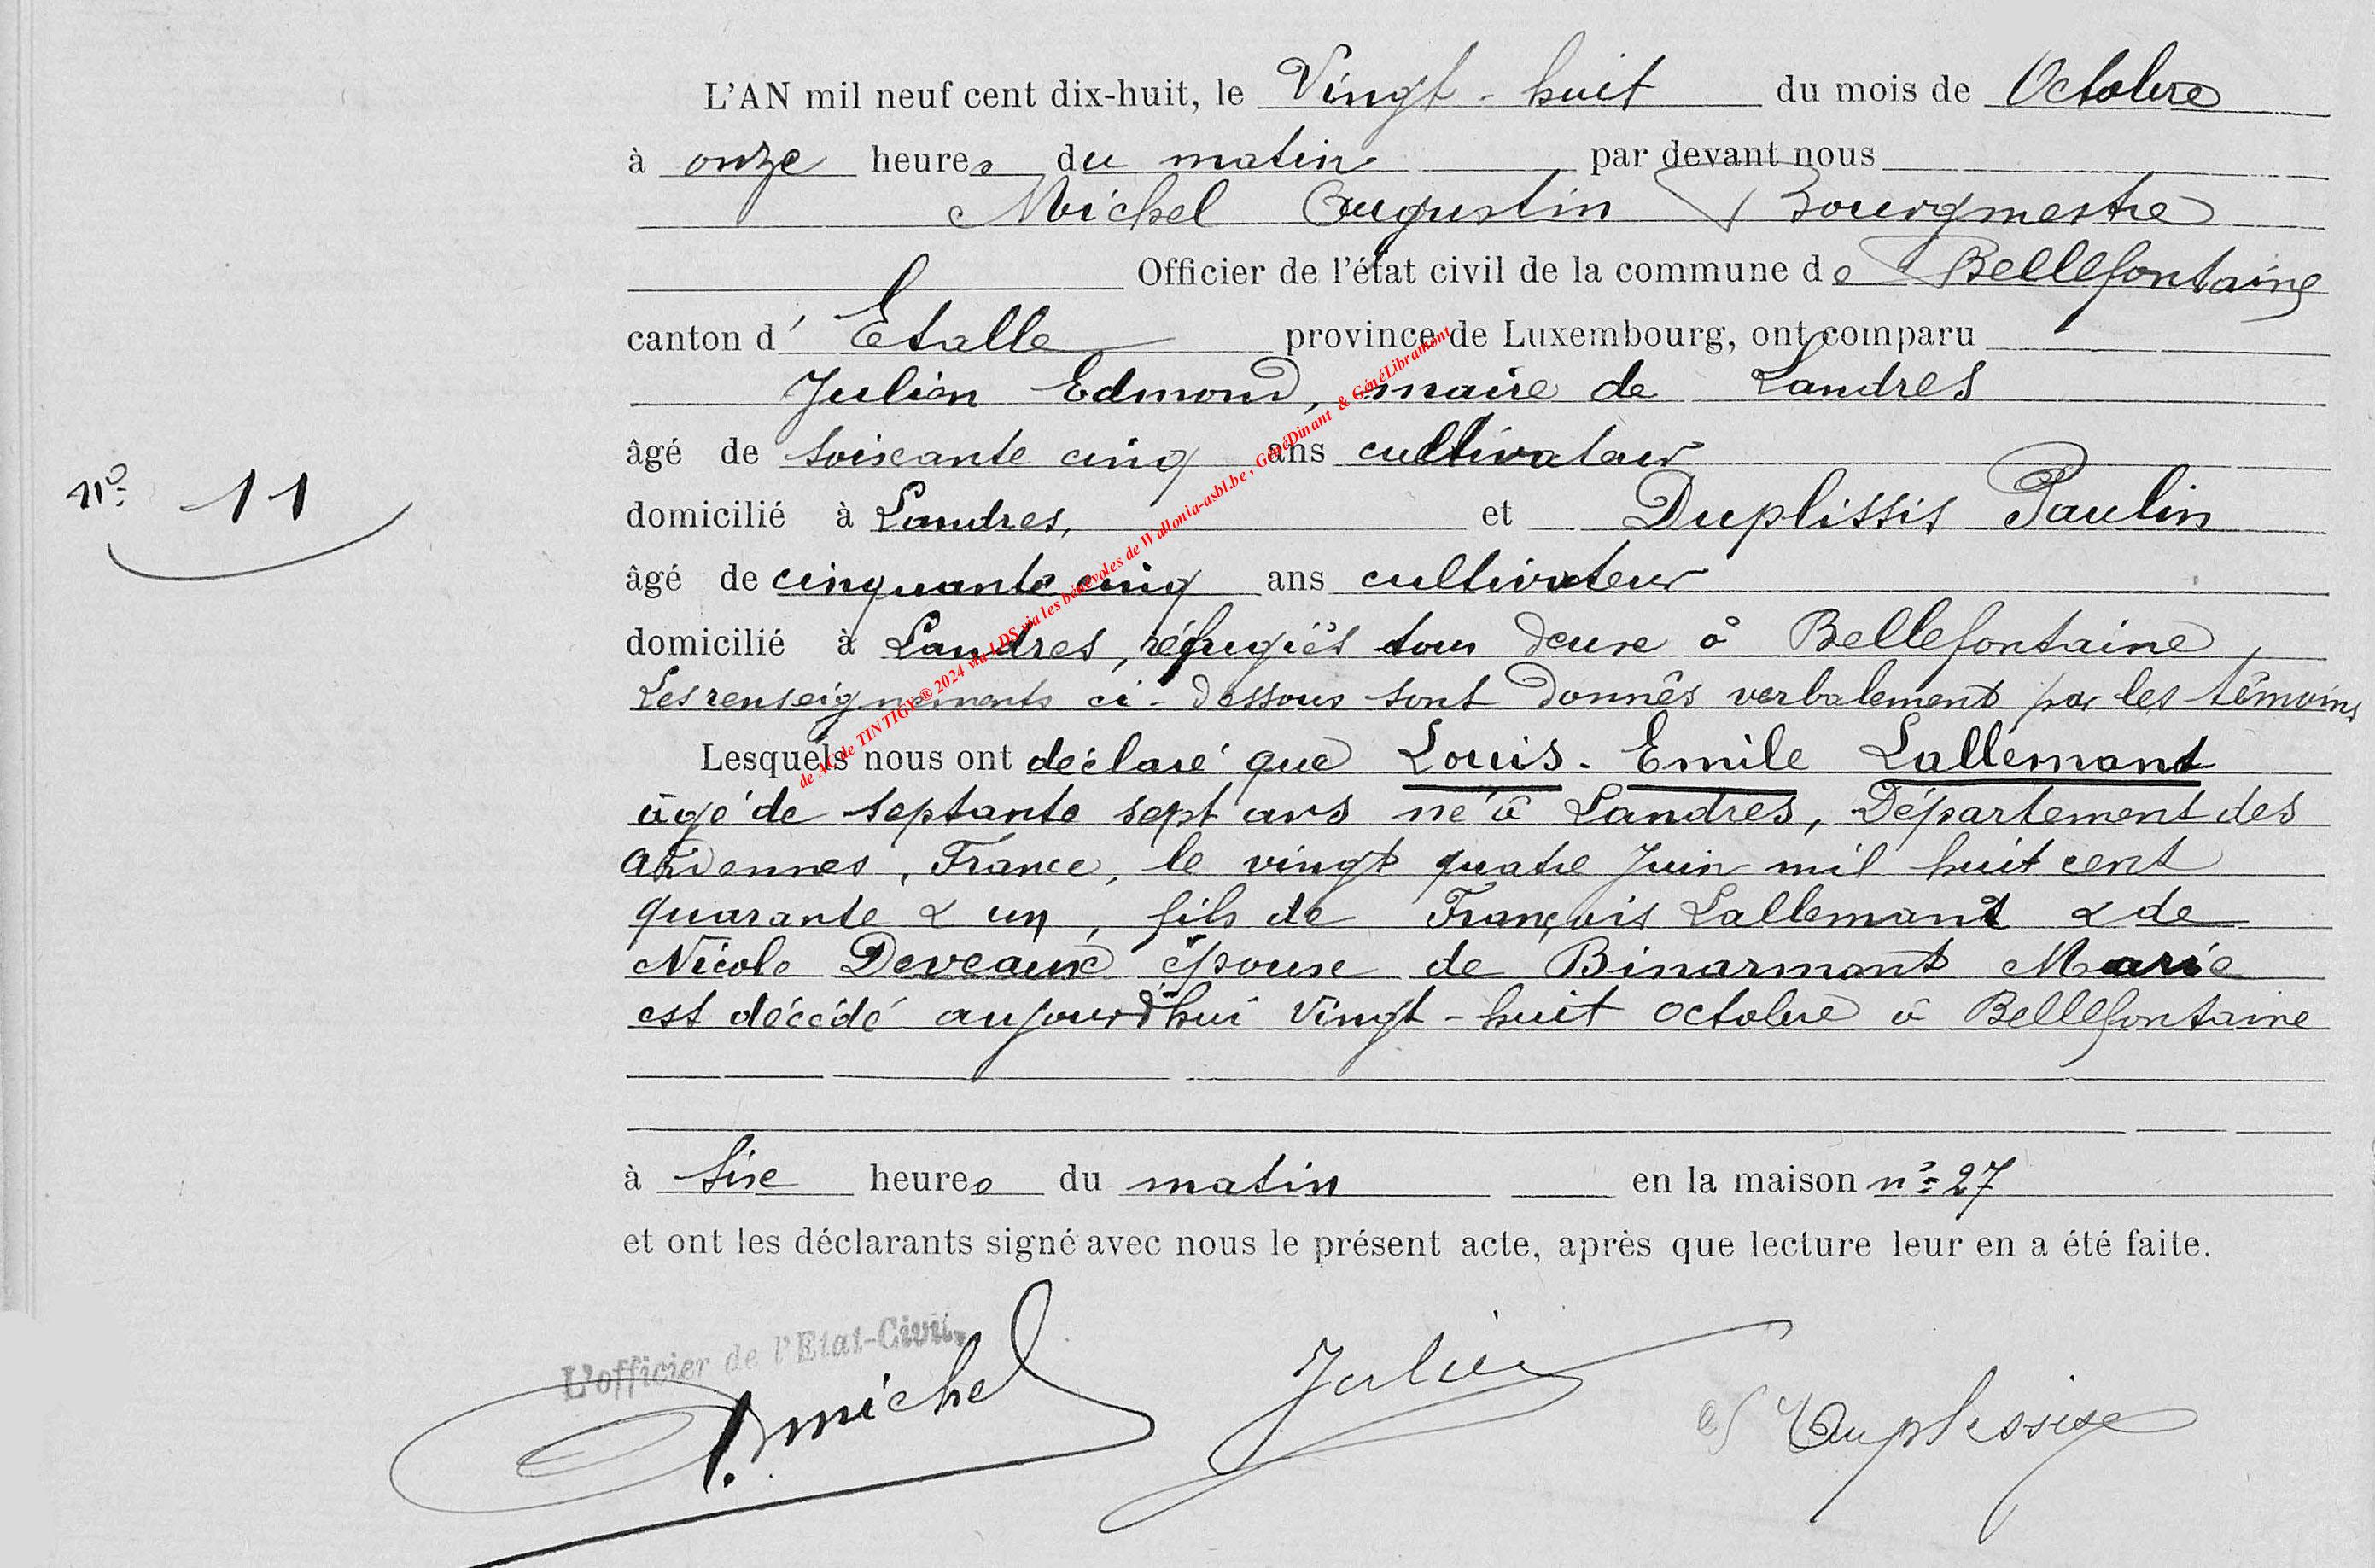 L'AN mil neuf cent dix-huit, le Vingt-huit du mois de Octobre
à onze heures du matin par devant nous
Michel Augustin Bourgmestre
Officier de l'état civil de la commune de Bellefontaine
canton d'Etalle province de Luxembourg, ont comparu
Julien Edmond, maire de Landres
âgé de soixante cinq ans cultivateur
nº 11
domicilié à Landres, et Duplissis Paulin
âgé de cinquante cinq ans cultivateur
domicilié à Landres, réfugiés tous deux à Bellefontaine,
Les renseignements ci-dessous sont donnés verbalement par les témoins
Lesquels nous ont déclaré que Louis-Emile Lallemant
âgé de septante sept ans né à Landres, Département des
Ardennes, France, le vingt quatre Juin mil huit cent
quarante & un, fils de François Lallemant & de
Nicole Deveaux époux de Binarmont Marie
est décédé aujourd'hui Vingt-huit octobre à Bellefontaine
à six heures du matin en la maison nº 27
et ont les déclarants signé avec nous le présent acte, après que lecture leur en a été faite.
L'officier de l'Etat-Civil,
A. Michel Julien Duplessix
de AC de TINTIGY® 2024 via LDS via les bénévoles de Wallonia-asbl.be, GénéDinant & GénéLibramont